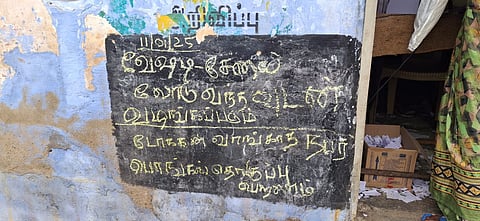 அறிவிப்பு
11/1/25
வேஷ்டி சேலை
லோடு வந்த உடன்
வழங்கப்படும்
டோக்கன் வாங்காத நபர்
பொங்கல் தொகுப்பு
பெறலாம்